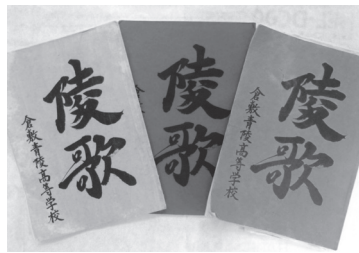 陵歌
倉敷青陵高等学校
陵歌
陵歌
倉敷青陵高等学校